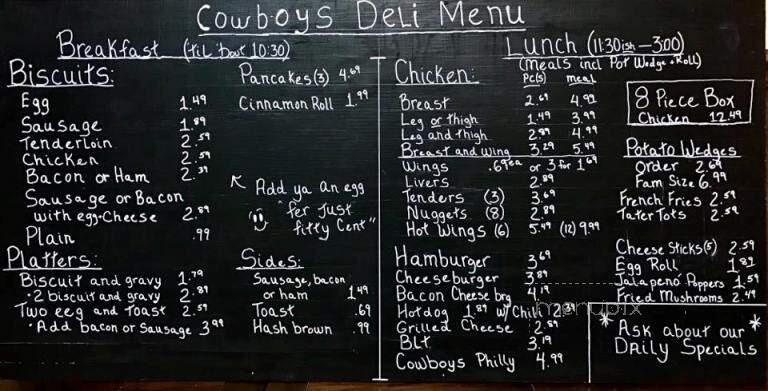 Cowboys Deli Menu
Breakfast (til 'bout 10:30)
Biscuits:
Egg 1.49
Sausage 1.89
Tenderloin 2.59
Chicken 2.59
Bacon or Ham 2.39
Sausage or Bacon
with egg+Cheese 2.89
Plain .99
Platters:
Biscuit and gravy 1.79
·2 biscuit and gravy 2.89
Two eeg and toast 2.59
·Add bacon or Sausage 3.99
Pancakes (3) 4.69
Cinnamon Roll 1.99
Add ya an egg
"fer just
fitty Cent"
Sides:
Sausage, bacon
or ham 1.49
Toast .69
Hash brown .99
Lunch (11:30ish-3:00)
(meals incl Pot Wedge + Roll)
Chicken: Pc(s) meal
Breast 2.69 4.92
Leg or thigh 1.49 3.99
Leg and thigh 2.89 4.99
Breast and wing 3.29 5.49
Wings .69ea or 3 for 1.69
Livers 2.89
Tenders (3) 3.69
Nuggets (8) 2.89
Hot Wings (6) 5.49 (12) 9.99
Hamburger 3.69
Cheeseburger 3.89
Bacon Cheese brg 4.19
Hotdog 1.89 w/ Chili
Grilled Cheese 2.89
BLT 3.19
Cowboys Philly 4.99
8 Piece Box
Chicken 12.49
Potato Wedges
Order 2.69
Fam Size 6.99
French Fries 2.59
Tater Tots 2.59
Cheese Sticks (5) 2.59
Egg Roll 1.89
Jalapeno Poppers 1.59
Fried Mushrooms 2.49
*Ask about our*
Daily Specials
menupix